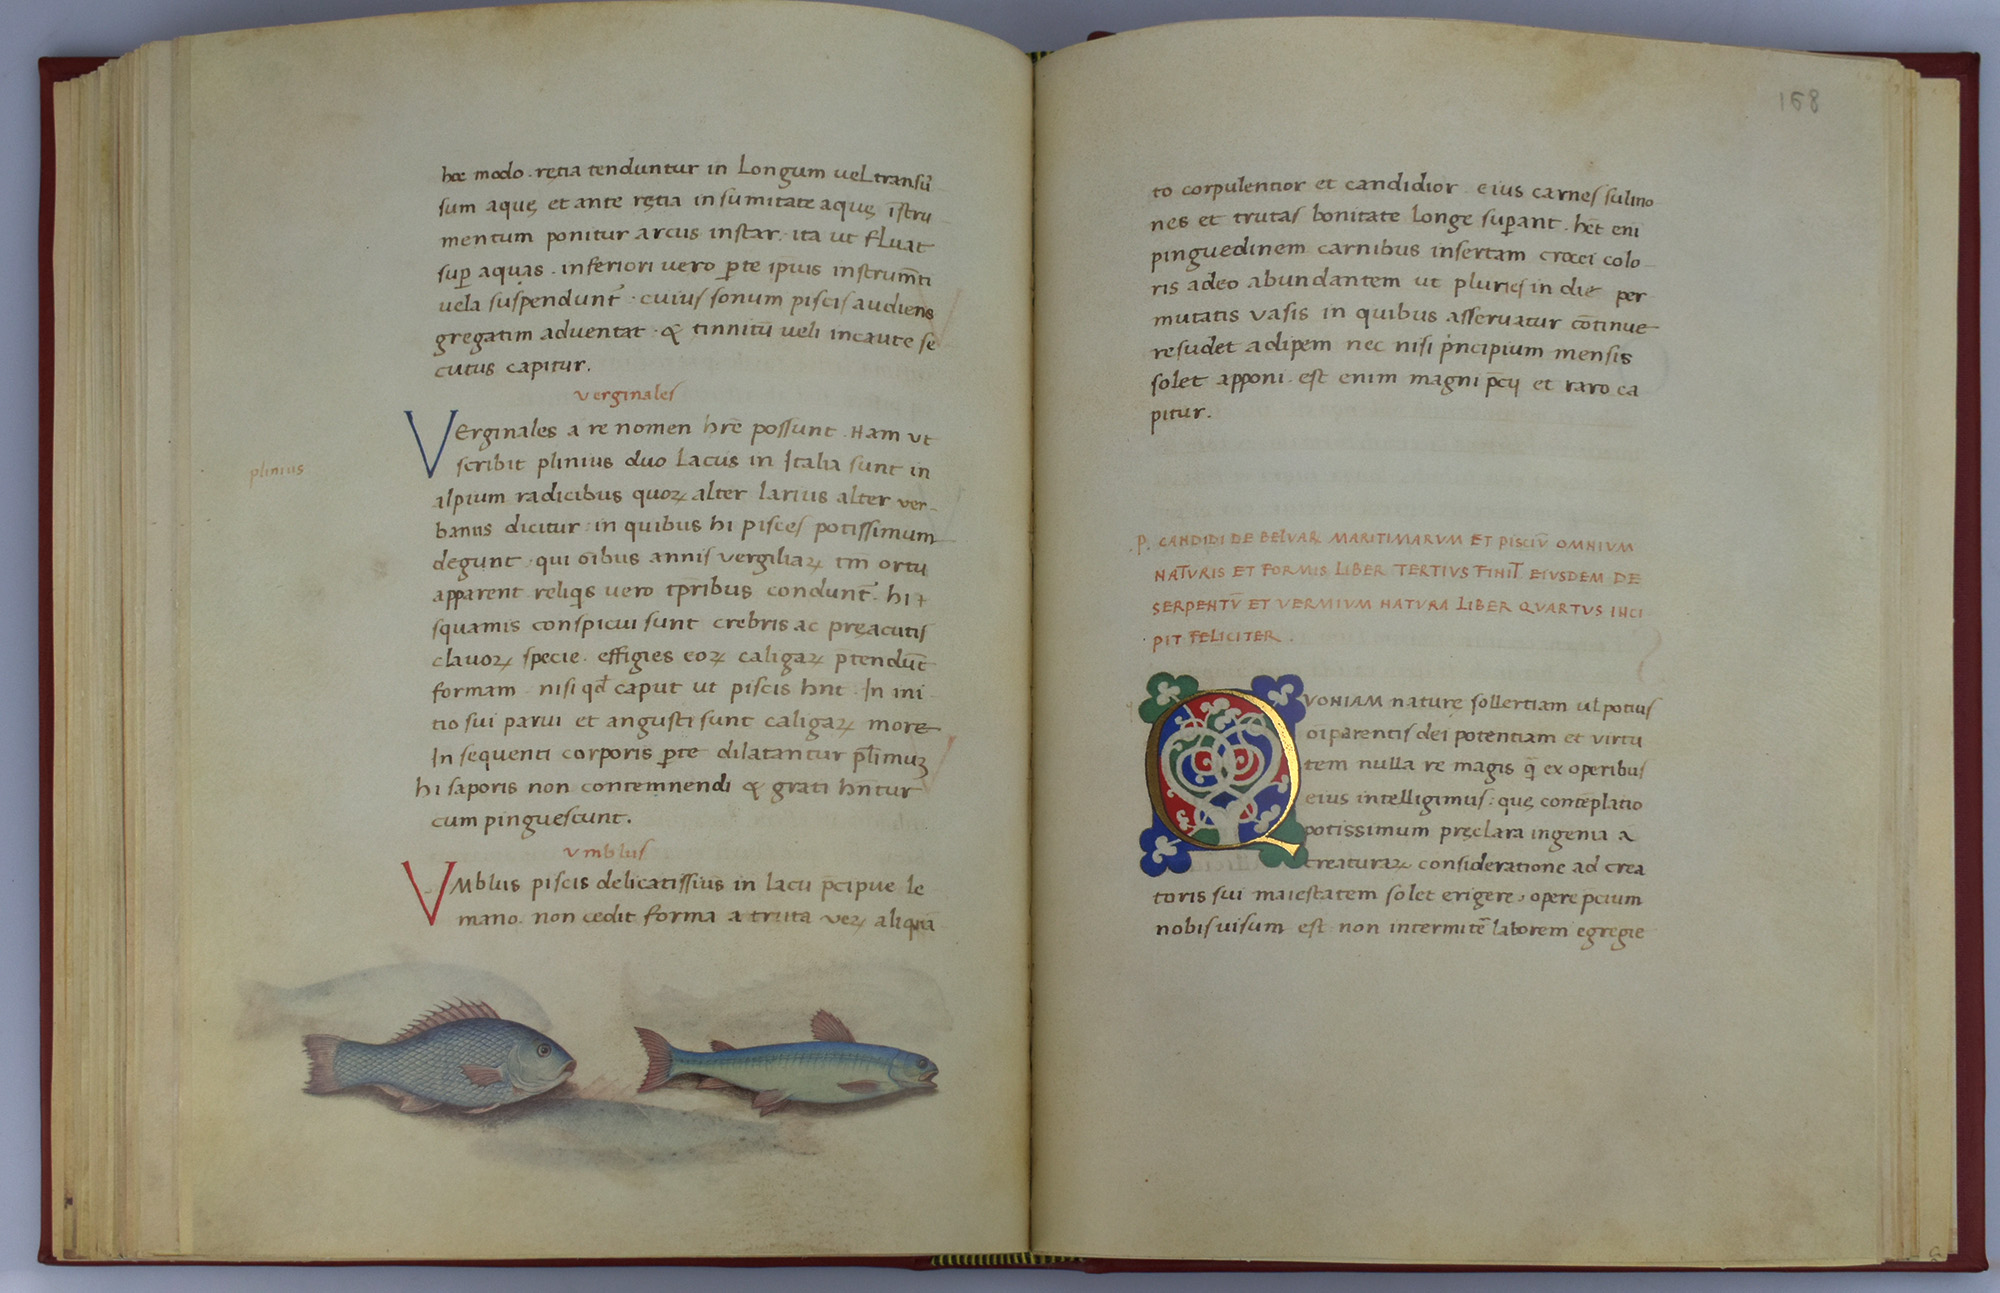 hoc modo. rętia tenduntur in Longum vel transũ
sum aquę et ante rętia in sumitate aquę ĩstru
mentum ponitur arcus instar. ita ut fluat
suꝑ aquas. inferiori vero ꝑte ipius instrum̃ti
vela suspendunt̃. cuius sonum piscis audiens
gregatim adventat. & tinnitũ veli incaute se
cutus capitur.
verginales
VErginales a re nomen hr̃e possunt. Nam ut
plinius
scribit plinius duo Lacus in Italia sunt in
alpium radicibus quoꝝ alter larius alter ver-
banus dicitur: in quibus hi pisces potissimum
degunt. qui oĩbus annis vergiliaꝝ tm̃ ortu
apparent reliqis vero tp̃ribus condunt̃. hi
squamis conspicui sunt crebris ac pręacutis
clavoꝝ specie. effigies eoꝝ caligaꝝ ptendũt
formam nisi qd̃ caput ut piscis hñt. In ini
tio sui parvi et angusti sunt caligaꝝ more
In sequenti corporis ꝑte dilatantur p̃limuꝫ
hi saporis non contemnendi & grati hñtur
cum pinguescunt.
vmblus
VMblus piscis delicatissimus in lacu p̃cipue le
mano. non cedit forma a truta veꝝ aliqtã
168
to corpulentior et candidior. eius carnes sulmo
nes et trutas bonitate longe suꝑant. hẽt eni
pinguedinem carnibus insertam crocei colo-
ris adeo abundantem ut pluries in die per
mutatis vasis in quibus asservatur cõtinue
resudet adipem nec nisi pͥncipium mensis
solet apponi. est enim magni p̃cij et raro ca
pitur.
.P. CANDIDI DE BELVAR̃ MARITIMARVM ET PISCIṼ OMNIVM
NATVRIS ET FORMIS LIBER TERTIVS FINIT̃ EIVSDEM DE
SERPENTṼ ET VERMIVM NATVRA LIBER QVARTVS INCI
PIT FELICITER.
QVONIAM naturę sollertiam ul potius
oĩparentis dei potentiam et virtu
tem nulla re magis q̃ ex operibus
eius intelligimus: quę contẽplatio
potissimum pręclara ingenia a
creaturaꝝ consideratione ad crea
toris sui maiestatem solet erigere, opere p̃cium
nobis visum est non intermitẽ laborem egregie